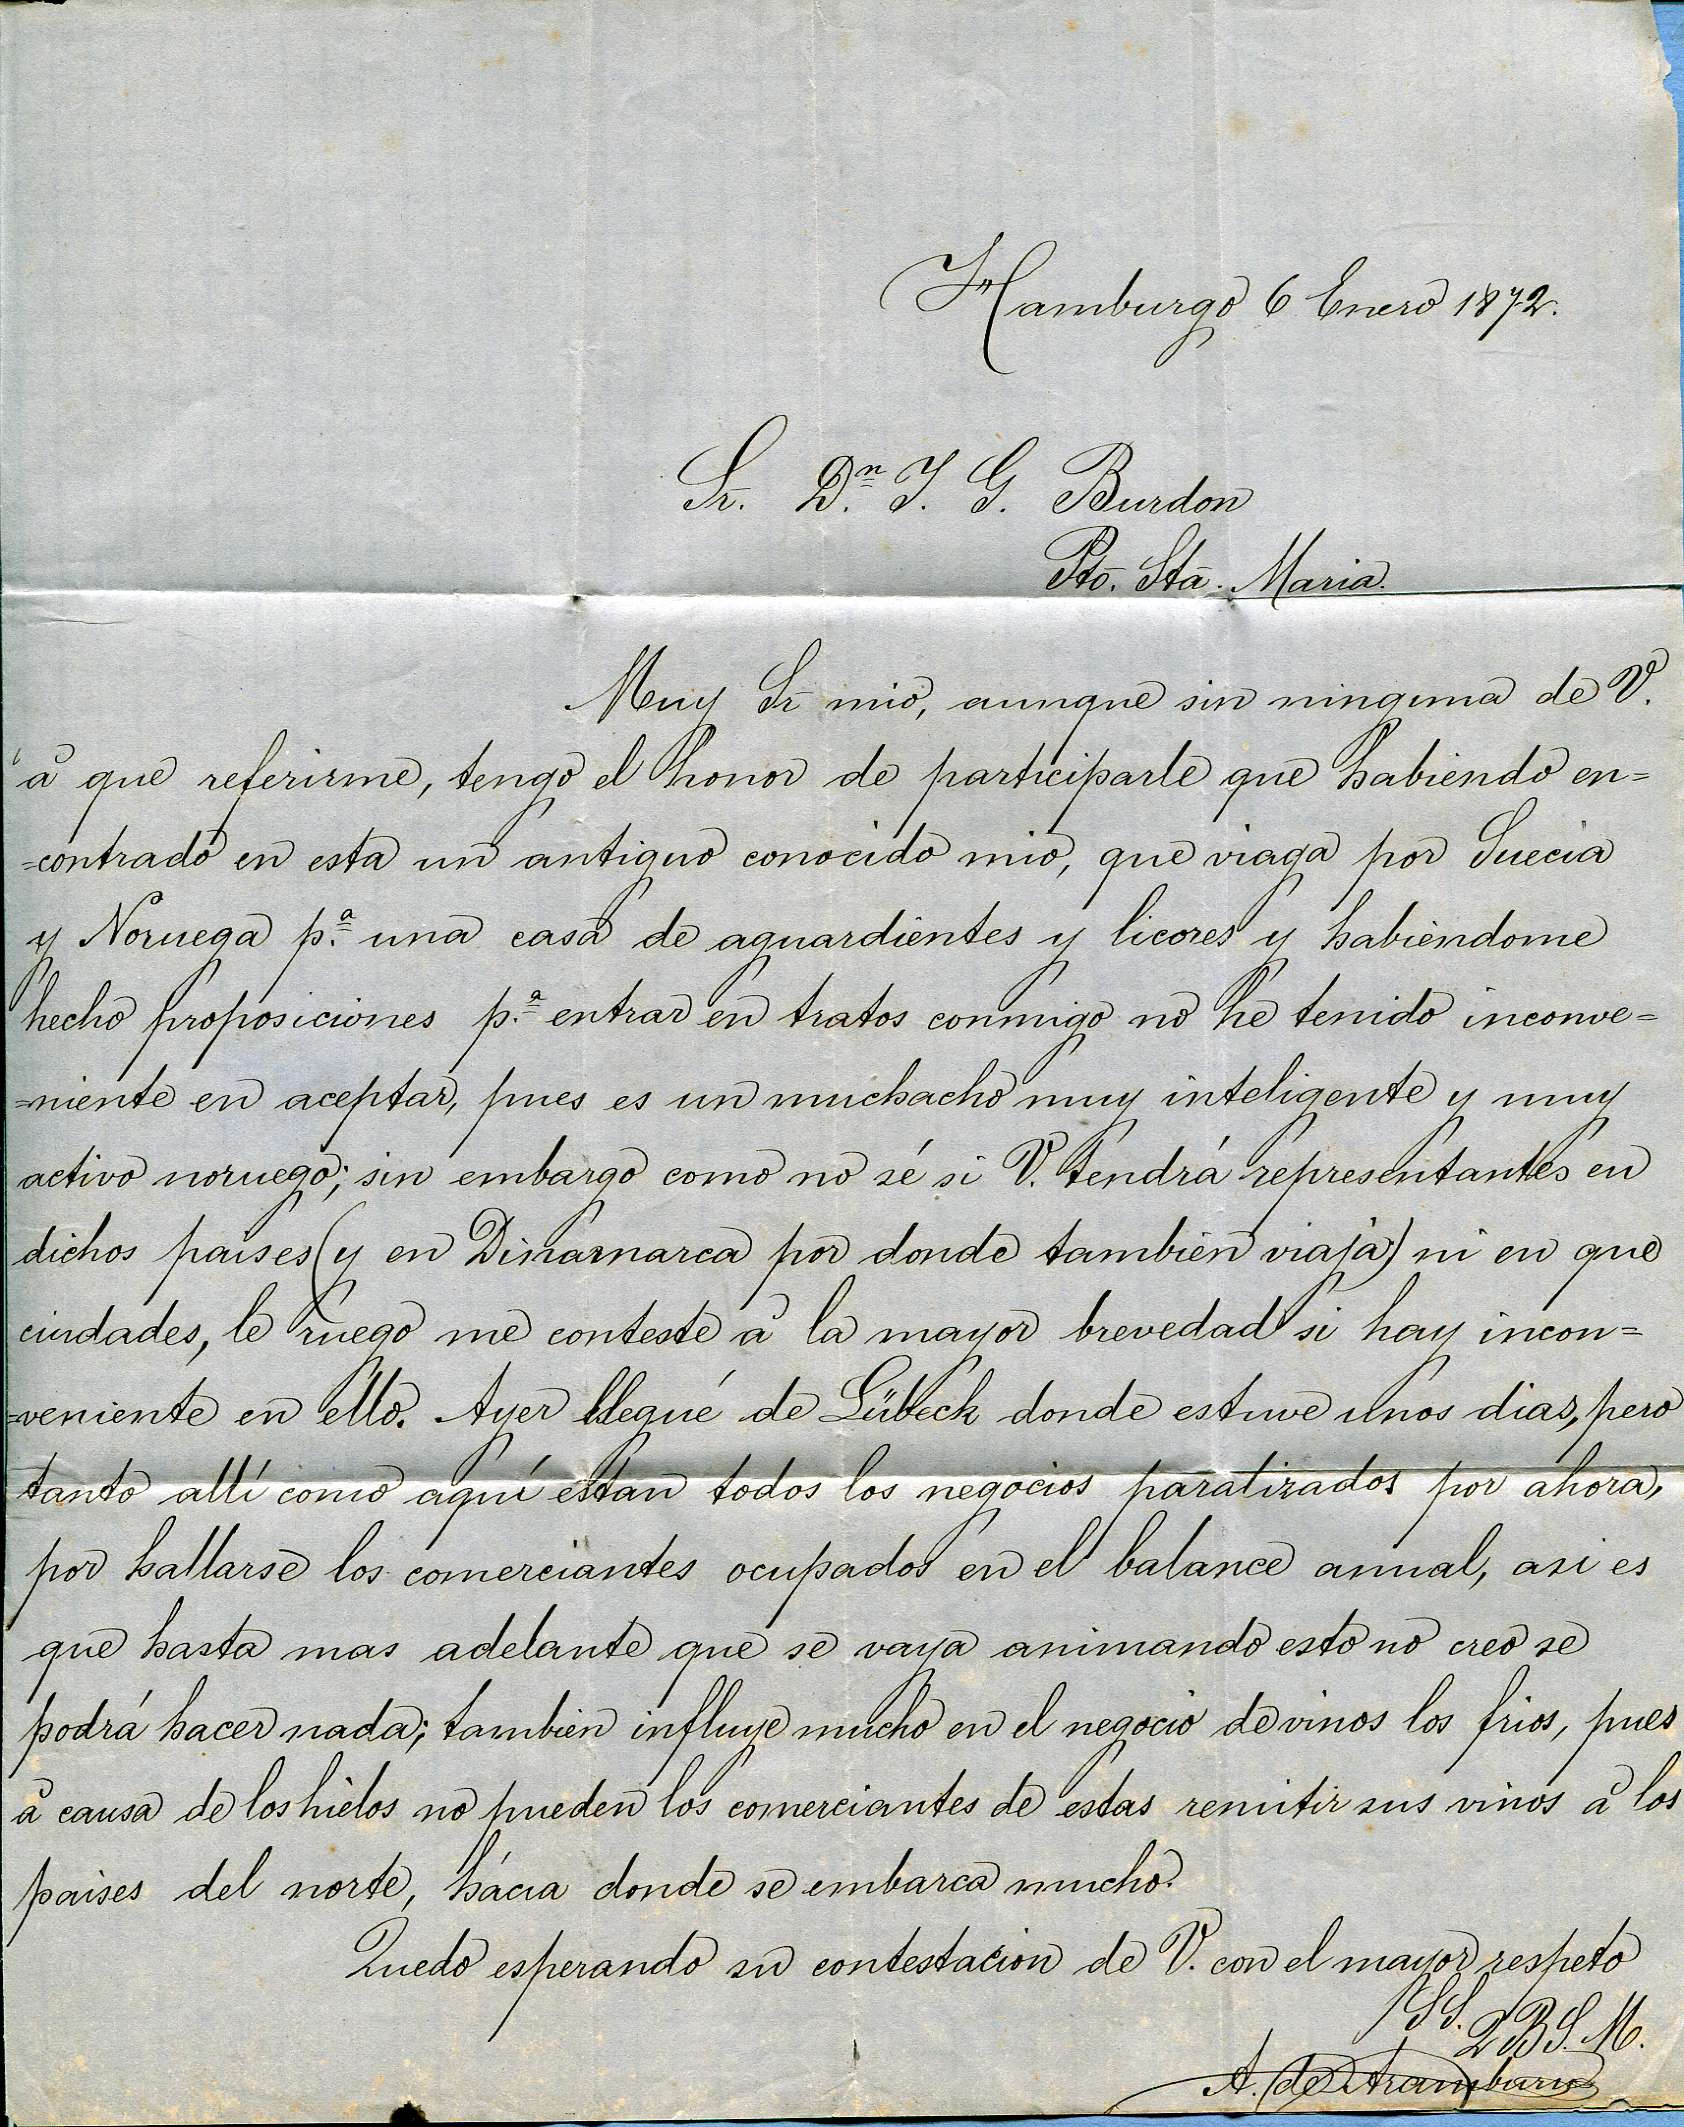 Hamburgo 6 Enero 1872.
Sr. Dn. J. G. Burdon
Pto. Sta. Maria.
Muy Sr mio, aunque sin ninguna de V.
á que referirme, tengo el honor de participarle que habiendo en=
=contrado en esta un antiguo conocido mio, que viaga por Suecia
y Noruega p.a una casa de aguardientes y licores y habiéndome
hecho proposiciones p.a entrar en tratos conmigo no he tenido inconve=
=niente en aceptar, pues es un muchacho muy inteligente y muy
activo noruego; sin embargo como no sé si V. tendrá representantes en
dichos paises (y en Dinamarca por donde tambien viaja) ni en que
ciudades, le ruego me conteste á la mayor brevedad si hay incon=
=veniente en ello. Ayer llegué de Lübeck donde estuve unos dias, pero
tanto allí como aquí estan todos los negocios paralizados por ahora,
por hallarse los comerciantes ocupados en el balance anual, asi es
que hasta mas adelante que se vaya animando esto no creo se
podrá hacer nada; tambien influye mucho en el negocio de vinos los frios, pues
á causa de los hielos no pueden los comerciantes de estas remitir sus vinos á los
paises del norte, hácia donde se embarca mucho.
Quedo esperando su contestacion de V. con el mayor respeto
SS.
Q B S. M.
A. de Aramburu